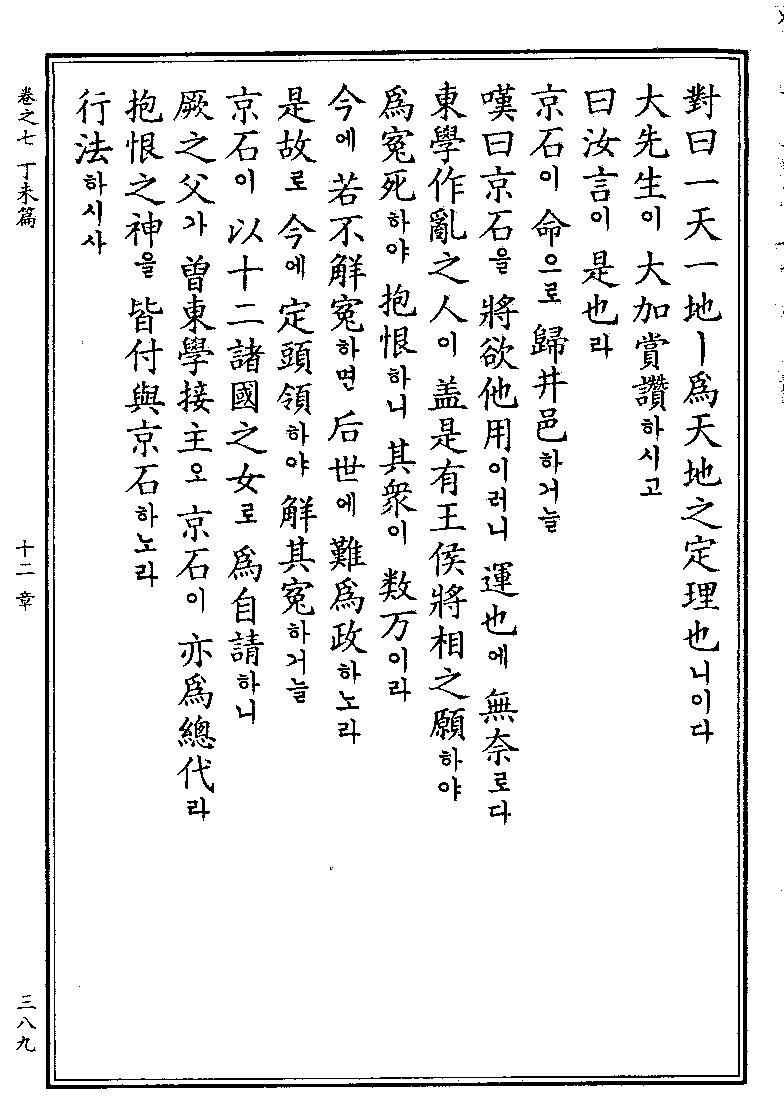 對曰一天一地ㅣ爲天地之定理也니이다
大先生이 大加賞讚하시고
曰汝言이 是也라
京石이 命으로 歸井邑하거늘
嘆曰京石을 將欲他用이러니 運也에 無奈로다
東學作亂之人이 盖是有王侯將相之願하야
爲寃死하야 抱恨하니 其衆이 数万이라
今에 若不解寃하면 后世에 難爲政하노라
是故로 今에 定頭領하야 解其寃하거늘
京石이 以十二諸國之女로 爲自請하니
厥之父가 曾東學接主오 京石이 亦爲總代라
抱恨之神을 皆付與京石하노라
行法하시사
卷之七 丁未篇
十二章
三八九